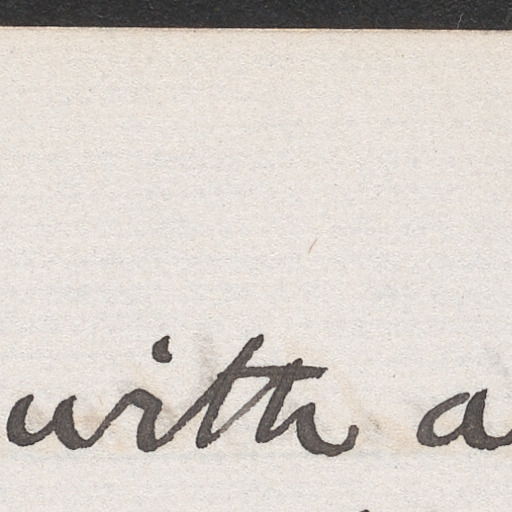 with a